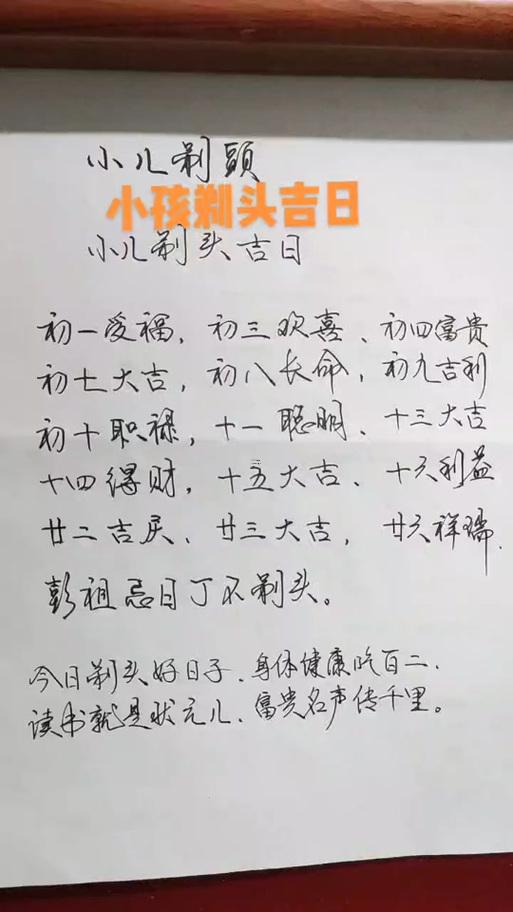 小儿剃头
小孩剃头吉日
小儿剃头吉日
初一受福，初三欢喜、初四富贵
初七大吉，初八长命，初九吉利
初十职禄，十一聪明、十三大吉
十四得财，十五大吉、十六利益
廿二吉庆、廿三大吉，廿六祥瑞.
彭祖忌日丁不剃头。
今日剃头好日子、身体健康吃百二.
读书就是状元儿、富贵名声传千里。